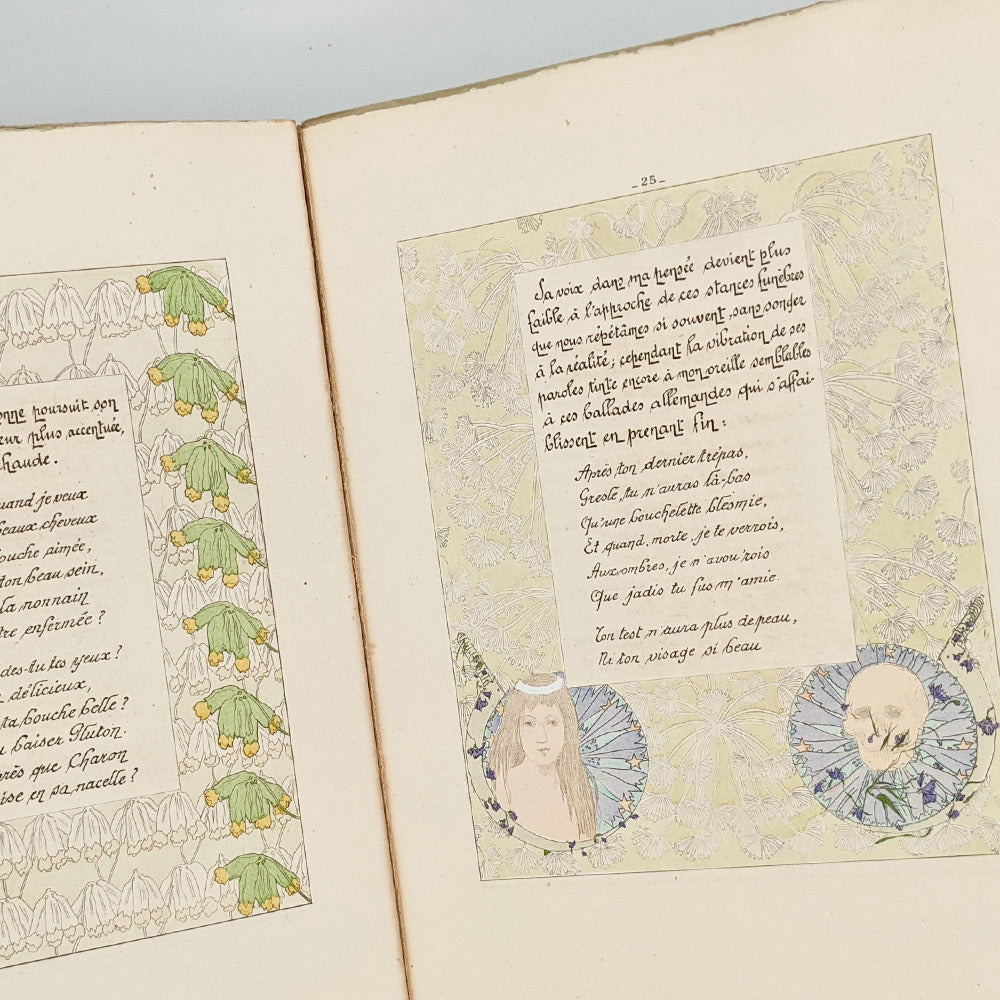 onne poursuit son
eur plus accentuée,
haude.
uand je veux
beaux cheveux
ouche aimée,
ton beau sein,
la nonnain
tre enfermée ?
des-tu tes yeux ?
délicieux,
ta bouche belle ?
u baiser Pluton.
près que Charon
ise en sa nacelle ?
_25_
Sa voix dans ma pensée devient plus
faible à l'approche de ces stances funèbres
que nous répétâmes si souvent, sans songer
à la réalité ; cependant la vibration de ses
paroles tinte encore à mon oreille semblables
à ces ballades allemandes qui s'affai-
blissent en prenant fin :
Après ton dernier trépas,
Gresle, tu n'auras là-bas
Qu'une bouchelette blesmie,
Et quand, morte, je te verrois,
Aux ombres, je n'avou'rois
Que jadis tu fus m'amie.
Ton test n'aura plus de peau,
Ni ton visage si beau